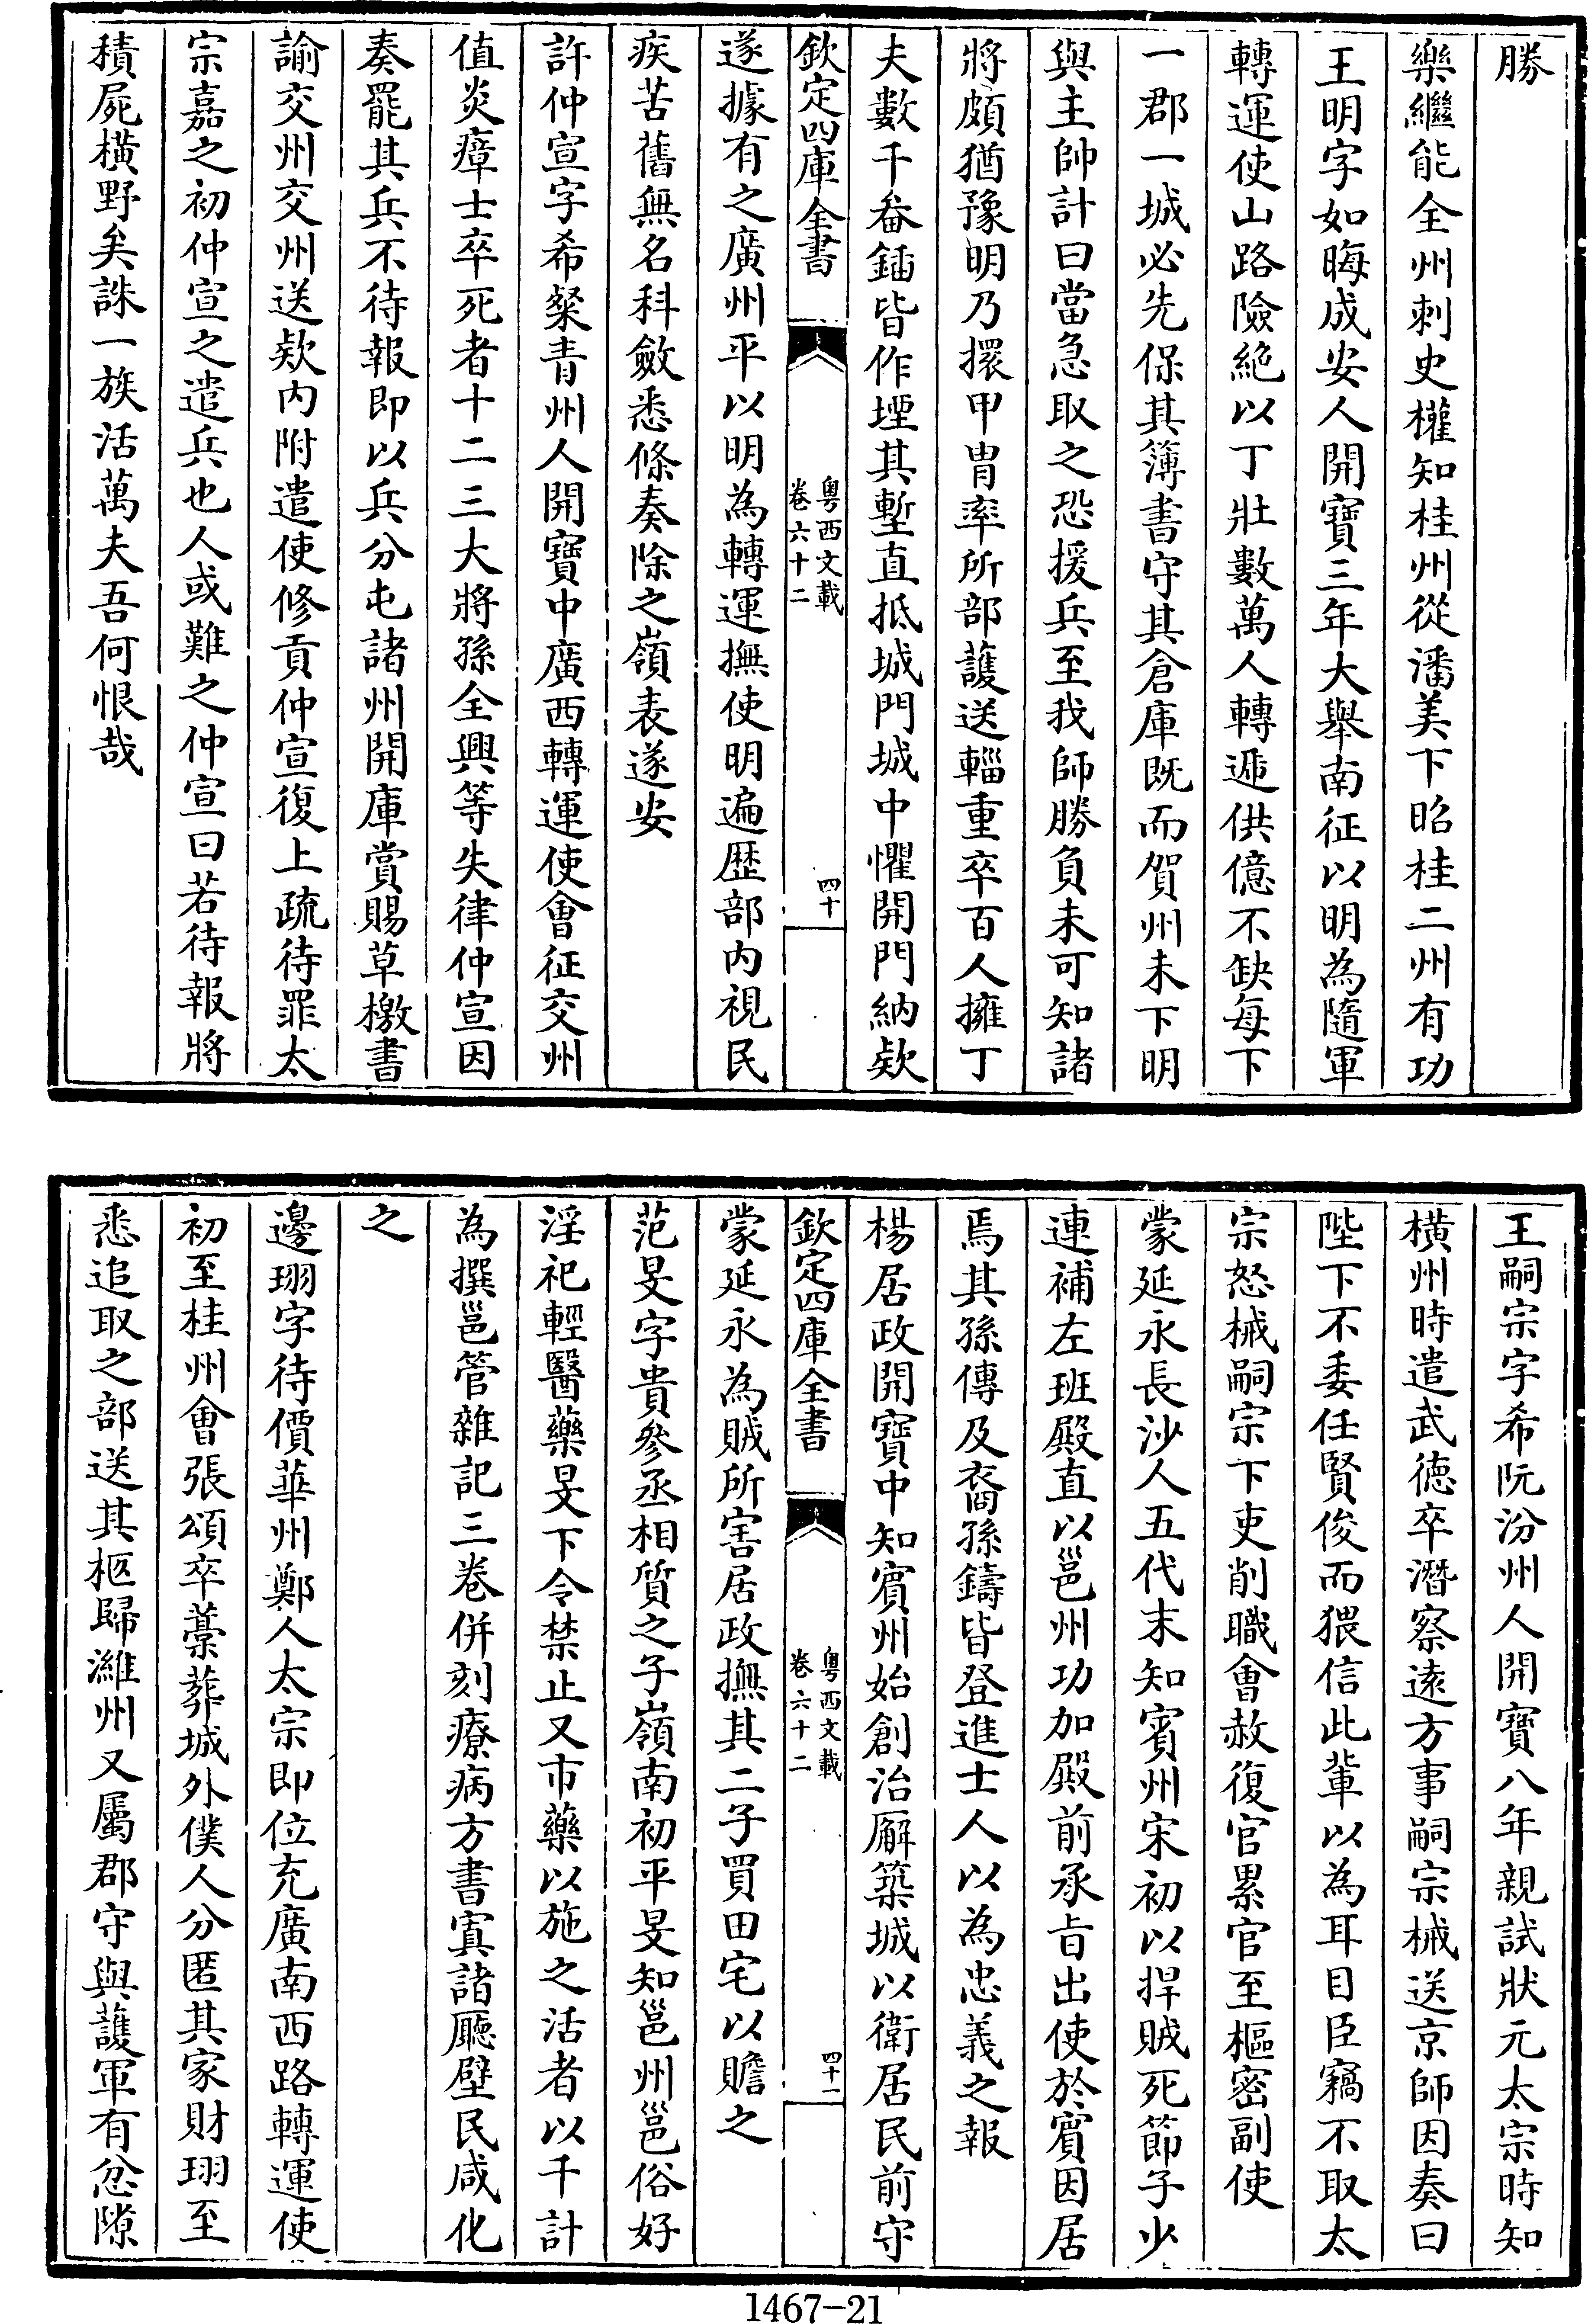 勝
樂繼能全州刺史權知桂州從潘美下昭桂二州有功
王明字如晦成安人開寶三年大舉南征以明為隨軍
轉運使山路險絶以丁壯數萬人轉遞供億不缺每下
一郡一城必先保其簿書守其倉庫既而賀州未下明
與主帥計曰當急取之恐援兵至我師勝負未可知諸
將頗猶豫明乃擐甲胄率所部䕶送輜重卒百人擁丁
夫數千畚鍤皆作堙其塹直抵城門城中懼開門納欵
欽定四庫全書
粤西文載
卷六十二
四十
遂據有之廣州平以明為轉運撫使明遍歴部内視民
疾苦舊無名科斂悉條奏除之嶺表遂安
許仲宣字希粲青州人開寶中廣西轉運使會征交州
值炎瘴士卒死者十二三大將孫全興等失律仲宣因
奏罷其兵不待報即以兵分屯諸州開庫賞賜草檄書
諭交州交州送欵内附遣使修貢仲宣復上疏待罪太
宗嘉之初仲宣之遣兵也人或難之仲宣曰若待報將
積屍橫野矣誅一族活萬夫吾何恨哉
王嗣宗字希阮汾州人開寶八年親試狀元太宗時知
橫州時遣武德卒潛察遠方事嗣宗械送京師因奏曰
陛下不委任賢俊而猥信此輩以為耳目臣竊不取太
宗怒械嗣宗下吏削職會赦復官累官至樞密副使
蒙延永長沙人五代末知賓州宋初以捍賊死節子少
連補左班殿直以邕州功加殿前承旨出使於賓因居
焉其孫傳及裔孫鑄皆登進士人以為忠義之報
楊居政開寶中知賓州始創治廨築城以衛居民前守
欽定四庫全書
粤西文載
卷六十二
四十一
蒙延永為賊所害居政撫其二子買田宅以贍之
范旻字貴參丞相質之子嶺南初平旻知邕州邕俗好
淫祀輕醫藥旻下令禁止又市藥以施之活者以千計
為撰邕管雜記三卷併刻療病方書寘諸廳壁民咸化
之
邊珝字待價華州鄭人太宗即位充廣南西路轉運使
初至桂州會張頌卒藁葬城外僕人分匿其家財珝至
悉追取之部送其柩歸濰州又屬郡守與䕶軍有忿隙
1467-21